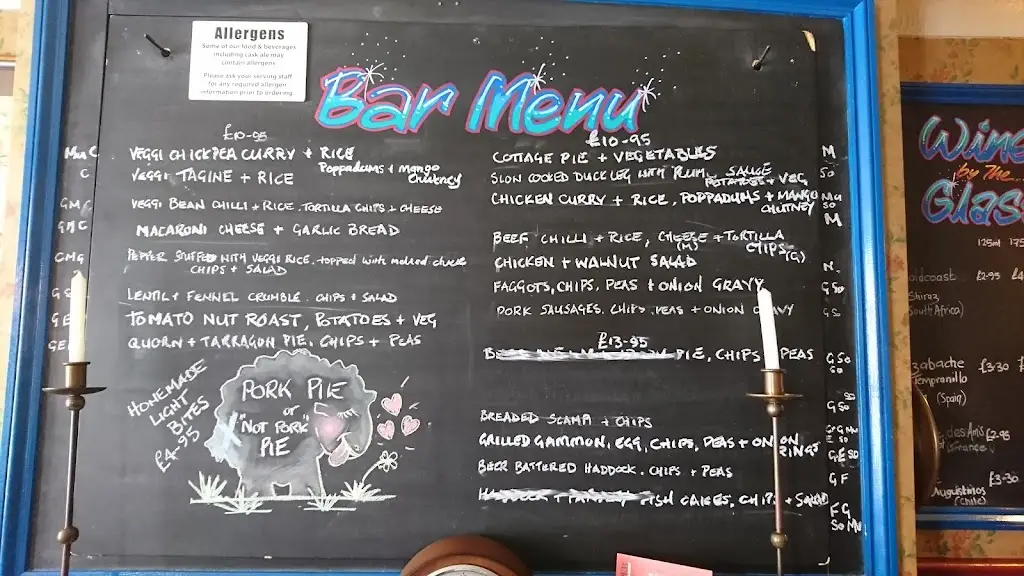 Allergens
Some of our food & beverages
including cask ale may
contain allergens
Please ask your serving staff
for any required allergen
information prior to ordering
Bar Menu
£10-95
VEGGI CHICKPEA CURRY + RICE
Poppadums + mango
chutney
C
VEGGI TAGINE + RICE
GMC
VEGGI BEAN CHILLI + RICE. TORTILLA CHIPS + CHEESE
GMC
MACARONI CHEESE + GARLIC BREAD
CMG
PEPPER STUFFED WITH VEGGI RICE. topped with melted cheese
CHIPS + SALAD
G
LENTIL + FENNEL CRUMBLE. CHIPS + SALAD
G
TOMATO NUT ROAST, POTATOES + VEG
GE
QUORN + TARRAGON PIE, CHIPS + PEAS
HOMEMADE
LIGHT
BITES
£4-95
PORK PIE
or
"NOT PORK"
PIE
£10-95
COTTAGE PIE + VEGETABLES M
SLOW COOKED DUCK LEG WITH PLUM SAUCE So
POTATOES + VEG
CHICKEN CURRY + RICE, POPPADUMS + MANGO
CHUTNEY So
M
BEEF CHILLI + RICE, CHEESE + TORTILLA
(M) CHIPS (G)
CHICKEN + WALNUT SALAD N
FAGGOTS, CHIPS, PEAS + ONION GRAVY G So
PORK SAUSAGES, CHIPS, PEAS + ONION GRAVY G S
£13-95
PIE, CHIPS PEAS G So
So
BREADED SCAMPI + CHIPS G So
GRILLED GAMMON, EGG, CHIPS, PEAS + ONION
RINGS
G E So
BEER BATTERED HADDOCK. CHIPS + PEAS G F
FISH CAKES, CHIPS + SALAD
F G
So Mu
Wine
by The...
Glass
125ml 175
£2-95
Shiraz,
South Africa)
£3-30
Tempranillo
(Spain)
£2-95
£3-30
Augustinos
(Chile)